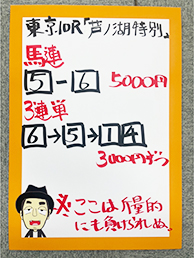 東京10R「芦ノ湖特別」
馬連
5-6 5000円
3連単
6→5→14
3000円ずつ
※ここは斤量的
にも負けられぬ。